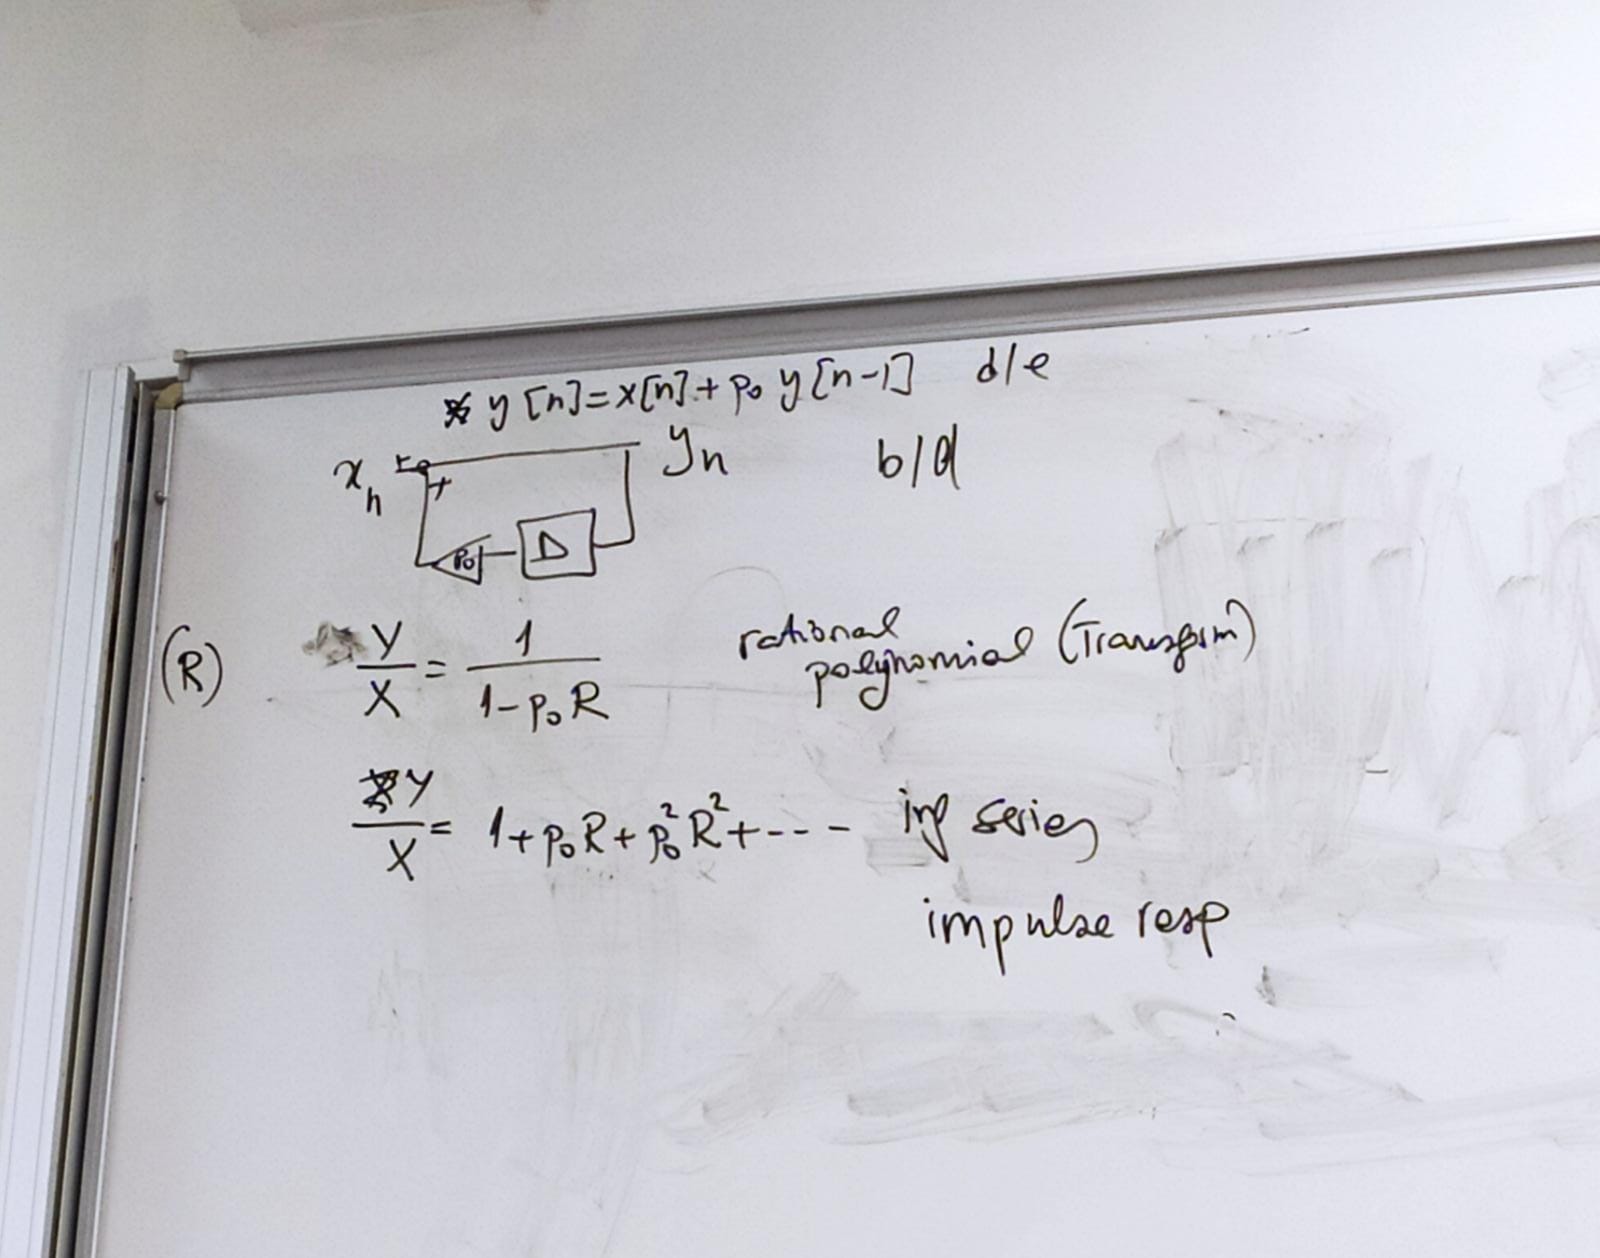 y[n]=x[n]+p₀ y[n-1] d/e
xₙ + yₙ b/d
p₀ D
(R) Y/X = 1/(1-p₀R) rational
polynomial (Transform)
Y/X = 1+p₀R+p₀²R²+--- inf series
impulse resp